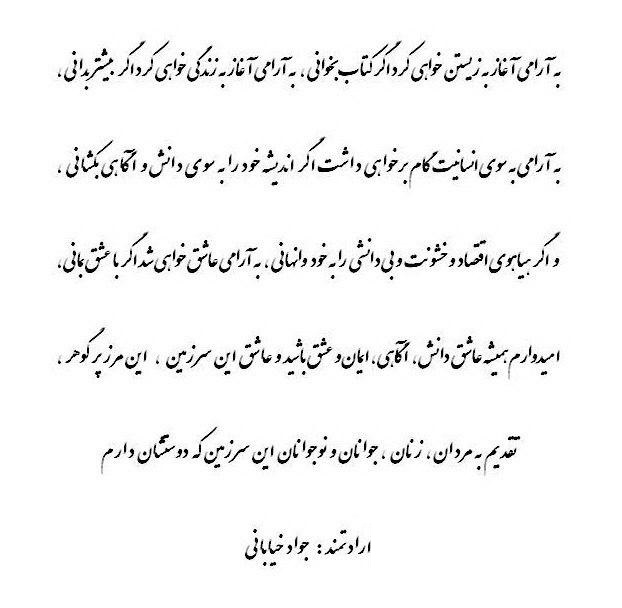 به آرامی آغاز به زیستن خواهی کرد اگر کتاب بخوانی ، به آرامی آغاز به زندگی خواهی کرد اگر بیشتر بدانی ،
به آرامی به سوی انسانیت گام برخواهی داشت اگر اندیشه خود را به سوی دانش و آگاهی بکشانی ،
و اگر هیاهوی اقتصاد و خشونت و بی دانشی را به خود وانهانی ، به آرامی عاشق خواهی شد اگر با عشق بمانی،
امیدوارم همیشه عاشق دانش، آگاهی، ایمان و عشق باشید و عاشق این سرزمین ، این مرز پر گوهر ،
تقدیم به مردان ، زنان ، جوانان و نوجوانان این سرزمین که دوستشان دارم
ارادتمند : جواد خیابانی